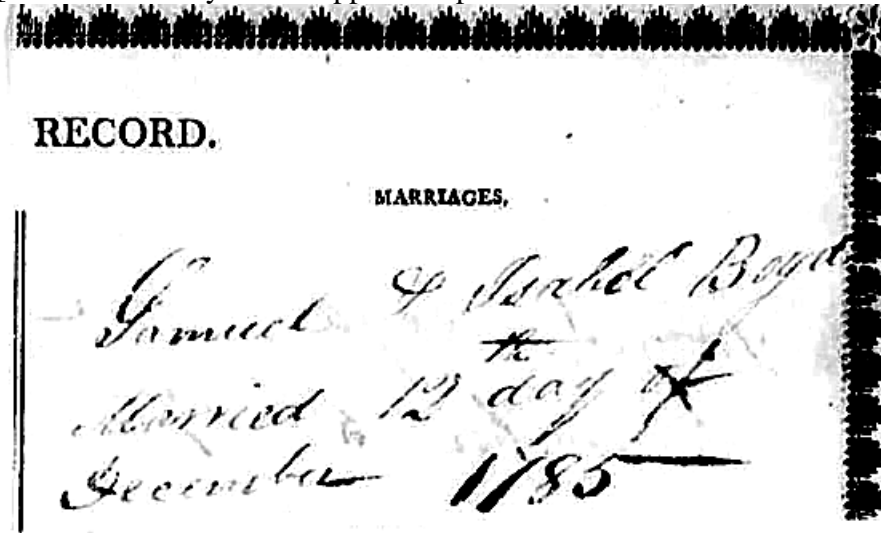 RECORD.
MARRIAGES,
Samuel & Isabel Boyd
Married 12th day of
December 1785